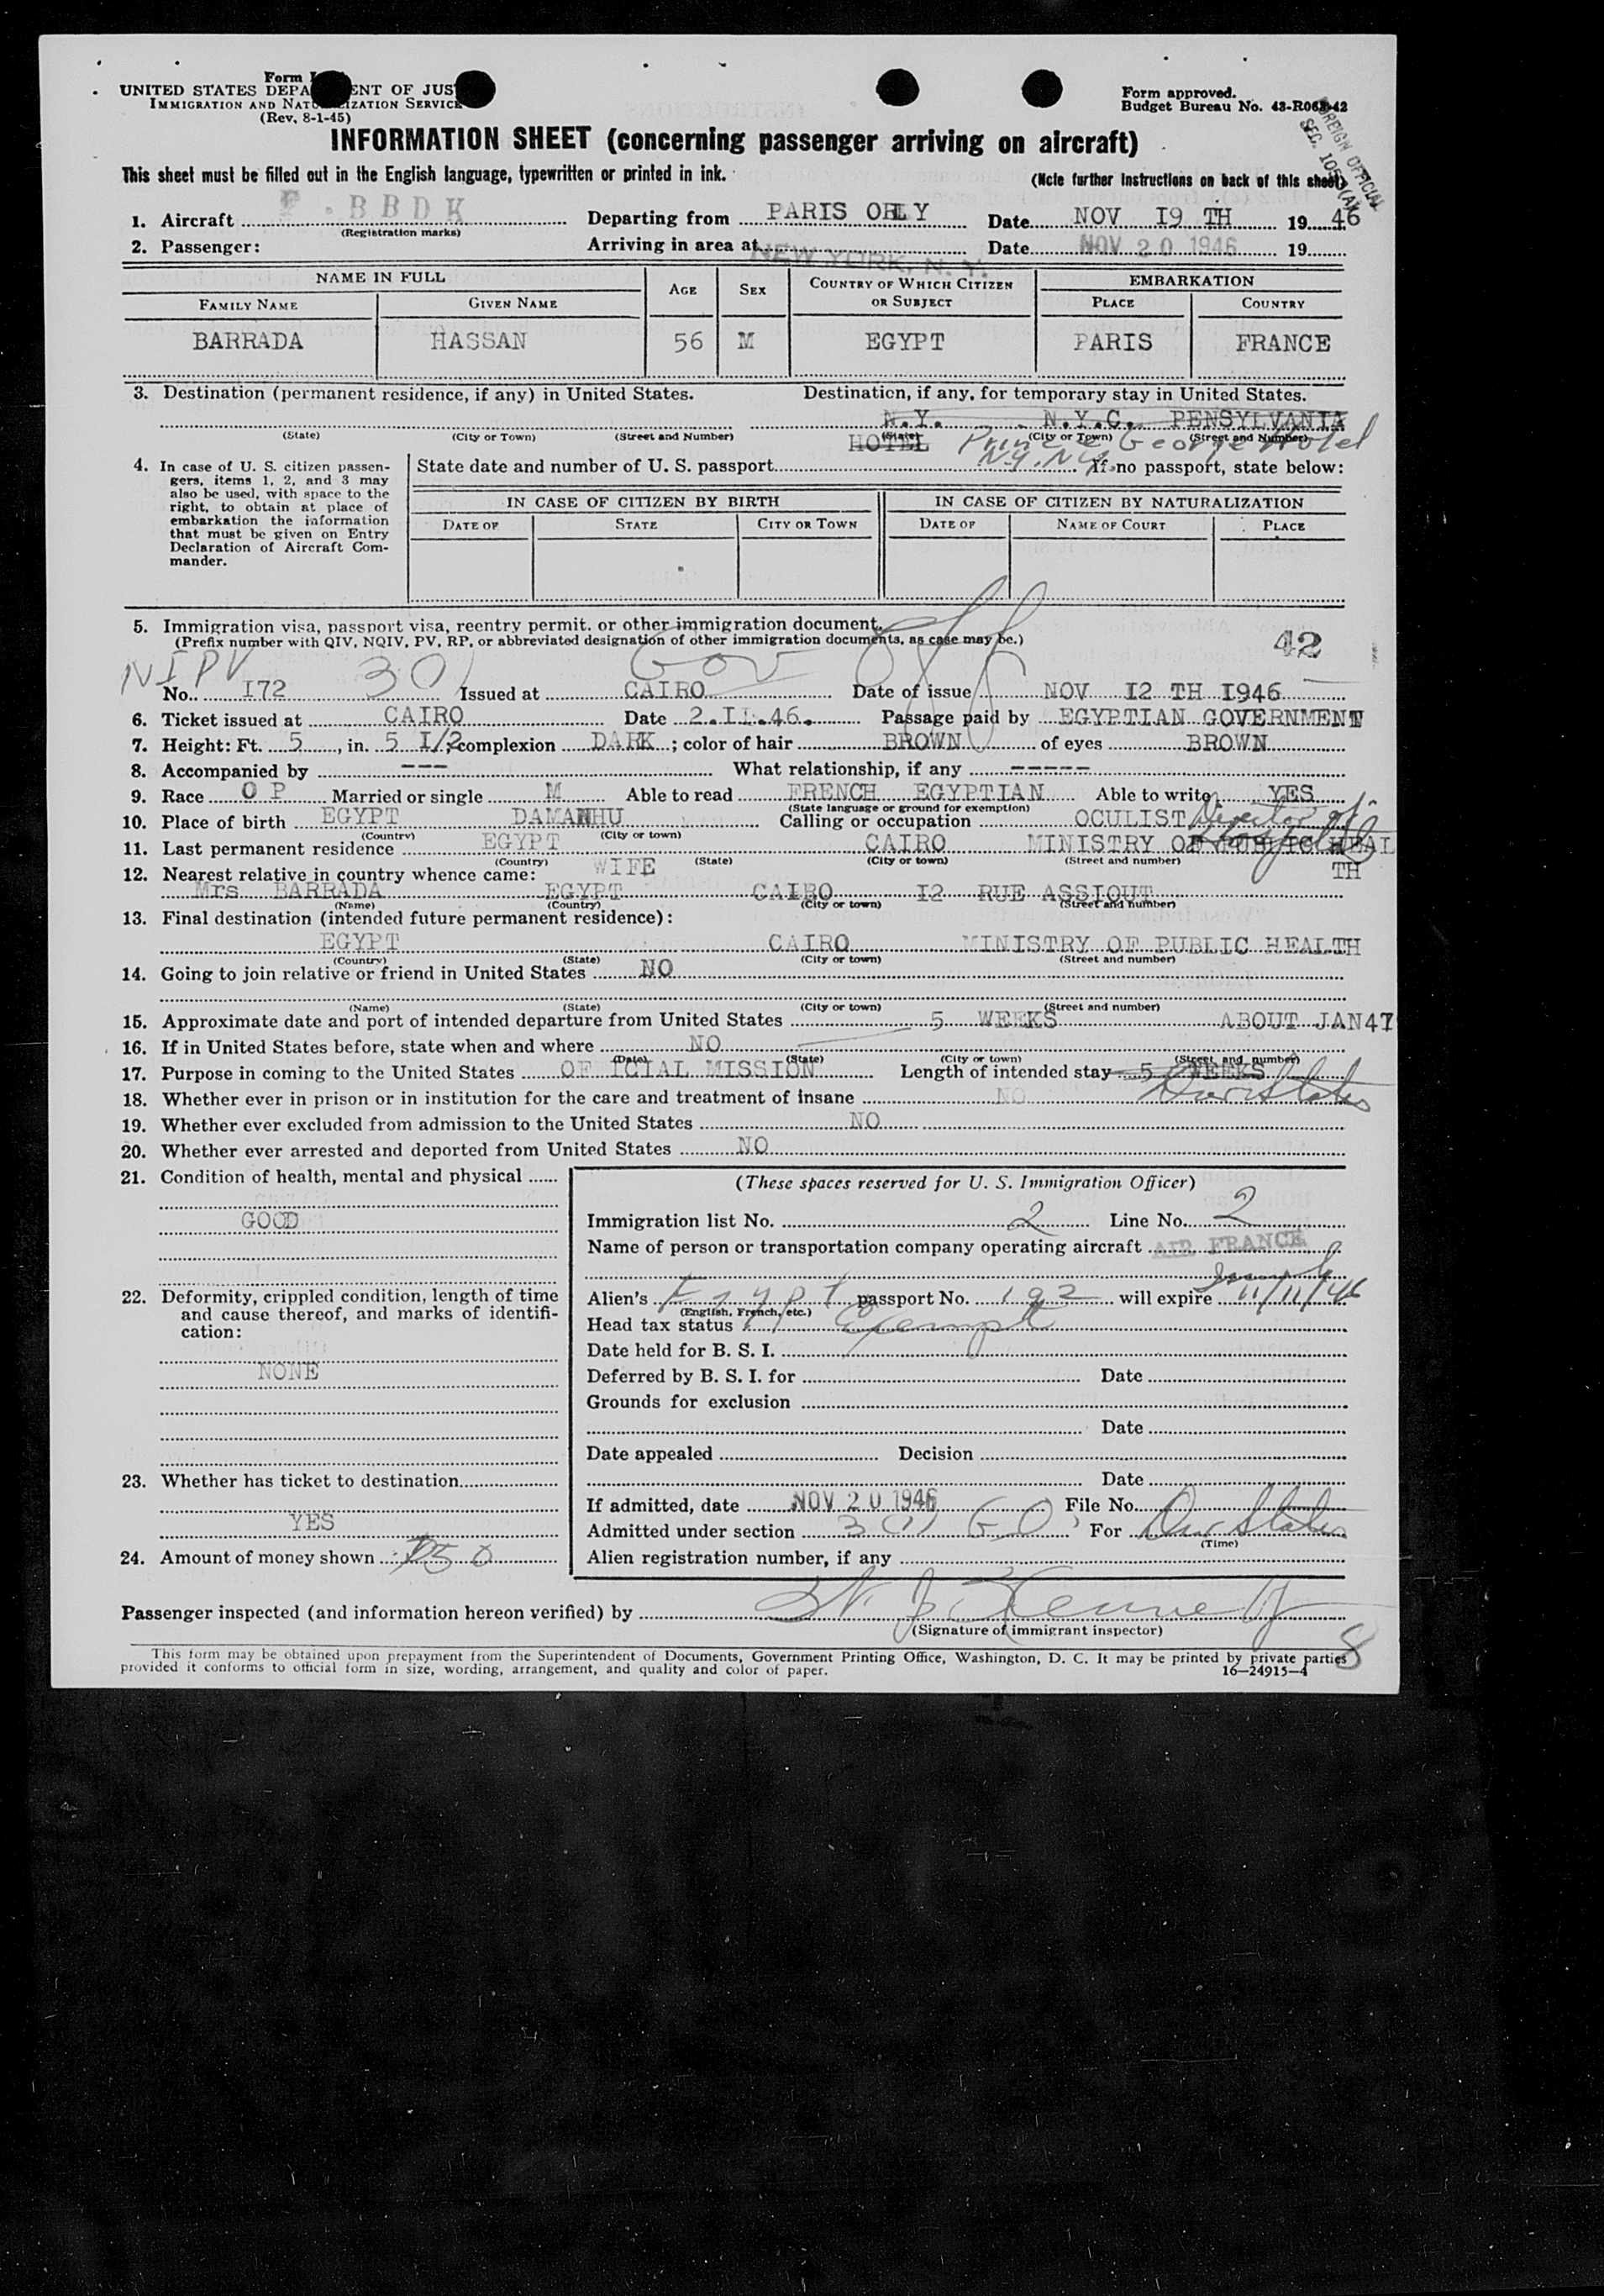 Form I
UNITED STATES DEPA ENT OF JUS
IMMIGRATION AND NATU IZATION SERVICE
(Rev. 8-1-45)
Form approved.
Budget Bureau No. 43-R063-42
FOREIGN OFFICIAL
INFORMATION SHEET (concerning passenger arriving on aircraft)
This sheet must be filled out in the English language, typewritten or printed in ink.
(Note further instructions on back of this sheet)
1. Aircraft F.BBDK Departing from PARIS ORLY Date NOV I9 TH 19 46
(Registration marks)
2. Passenger: Arriving in area at NEW YORK, N. Y. Date NOV 20 1946 19
NAME IN FULL AGE SEX COUNTRY OF WHICH CITIZEN OR SUBJECT EMBARKATION
FAMILY NAME GIVEN NAME PLACE COUNTRY
BARRADA HASSAN 56 M EGYPT PARIS FRANCE
3. Destination (permanent residence, if any) in United States. Destination, if any, for temporary stay in United States.
N.Y. N.Y.C. PENSYLVANIA
(State) (City or Town) (Street and Number) (State) (City or Town) (Street and Number)
HOTEL Prince George Hotel
N.Y. N.Y.
4. In case of U. S. citizen passengers, items 1, 2, and 3 may also be used, with space to the right, to obtain at place of embarkation the information that must be given on Entry Declaration of Aircraft Commander.
State date and number of U. S. passport If no passport, state below:
IN CASE OF CITIZEN BY BIRTH IN CASE OF CITIZEN BY NATURALIZATION
DATE OF STATE CITY OR TOWN DATE OF NAME OF COURT PLACE
5. Immigration visa, passport visa, reentry permit, or other immigration document.
(Prefix number with QIV, NQIV, PV, RP, or abbreviated designation of other immigration documents, as case may be.)
42
NIPV 30 Gov Off
No. I72 Issued at CAIRO Date of issue NOV I2 TH I946
6. Ticket issued at CAIRO Date 2.II.46. Passage paid by EGYPTIAN GOVERNMENT
7. Height: Ft. 5, in. 5 I/2; complexion DARK; color of hair BROWN of eyes BROWN
8. Accompanied by --- What relationship, if any -----
9. Race O P Married or single M Able to read FRENCH EGYPTIAN Able to write YES
(State language or ground for exemption)
10. Place of birth EGYPT DAMANHU Calling or occupation OCULIST Director of Hospitals
(Country) (City or town)
11. Last permanent residence EGYPT CAIRO MINISTRY OF PUBLIC HEAL
TH
(Country) (State) (City or town) (Street and number)
12. Nearest relative in country whence came: WIFE
Mrs BARRADA EGYPT CAIRO I2 RUE ASSIOUT
(Name) (Country) (City or town) (Street and number)
13. Final destination (intended future permanent residence):
EGYPT CAIRO MINISTRY OF PUBLIC HEALTH
(Country) (State) (City or town) (Street and number)
14. Going to join relative or friend in United States NO
(Name) (State) (City or town) (Street and number)
15. Approximate date and port of intended departure from United States 5 WEEKS ABOUT JAN47
16. If in United States before, state when and where NO
(Date) (State) (City or town) (Street and number)
17. Purpose in coming to the United States OF ICIAL MISSION Length of intended stay 5 WEEKS
Dur Status
18. Whether ever in prison or in institution for the care and treatment of insane NO
19. Whether ever excluded from admission to the United States NO
20. Whether ever arrested and deported from United States NO
21. Condition of health, mental and physical
GOOD
22. Deformity, crippled condition, length of time and cause thereof, and marks of identification:
NONE
23. Whether has ticket to destination
YES
24. Amount of money shown
(These spaces reserved for U. S. Immigration Officer)
Immigration list No. 2 Line No. 2
Name of person or transportation company operating aircraft AIR FRANCE
Alien's Egypt passport No. 192 will expire 11/11/46
(English, French, etc.)
Head tax status Exempt
Date held for B. S. I.
Deferred by B. S. I. for Date
Grounds for exclusion
Date
Date appealed Decision
Date
If admitted, date NOV 20 1946 File No.
Admitted under section 3(1) GO For Dur Status
(Time)
Alien registration number, if any
Passenger inspected (and information hereon verified) by
(Signature of immigrant inspector)
8
This form may be obtained upon prepayment from the Superintendent of Documents, Government Printing Office, Washington, D. C. It may be printed by private parties
provided it conforms to official form in size, wording, arrangement, and quality and color of paper. 16—24915-4